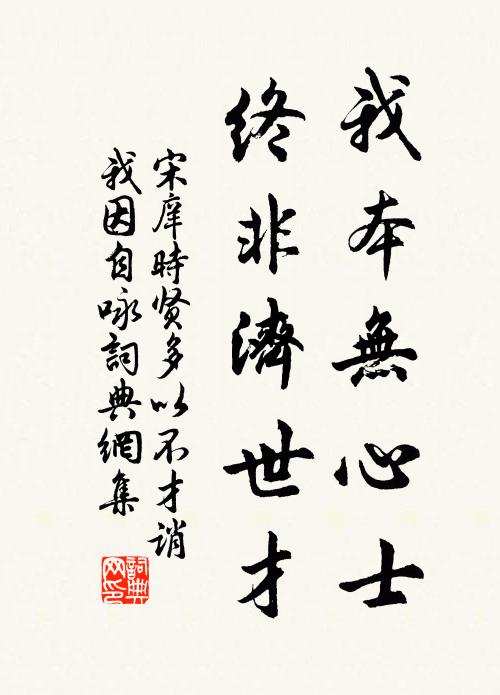 我本無心士
終非濟世才
宋庠時贤多以不才誚
我因自咏詞典網集
詞典网印